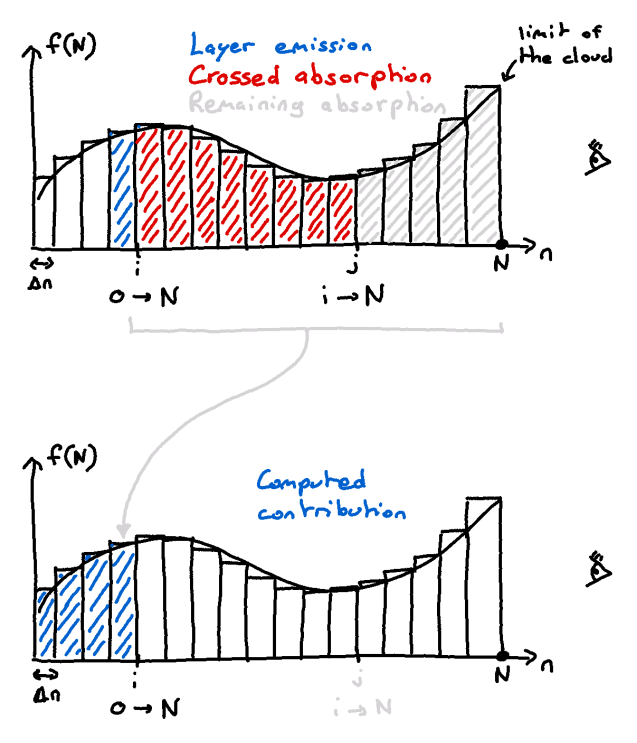 f(N)
Layer emission
Crossed absorption
Remaining absorption
limit of
the cloud
Δn
i
j
N
n
0 → N
i → N
f(N)
Computed
contribution
Δn
i
j
N
n
0 → N
i → N